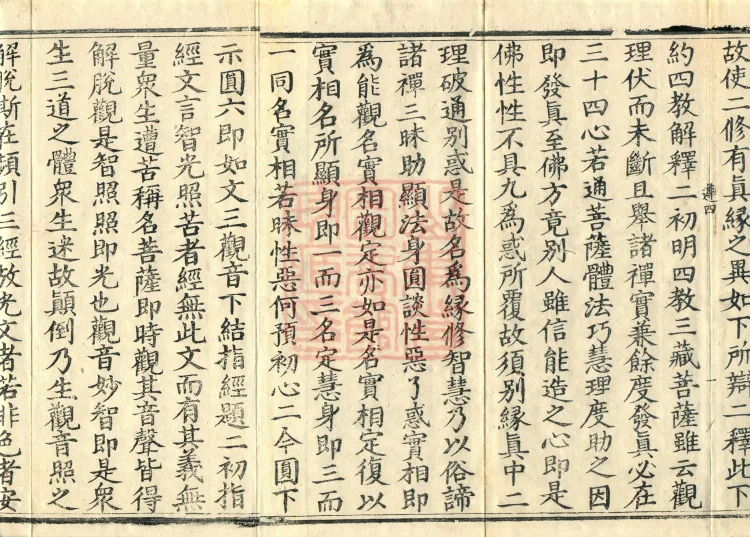 故使二修有真緣之異如下所辯二釋此下
遵四
約四教解釋二初明四教三藏菩薩雖云觀
理伏而未斷且舉諸禪實兼餘度發真必在
三十四心若通菩薩體法巧慧理度助之因
即發真至佛方竟別人雖信能造之心即是
佛性性不具九為惑所覆故須別緣真中二
理破通別惑是故名為緣修智慧乃以俗諦
諸禪三昧助顯法身圓談性惡了惑實相即
為能觀名實相觀定亦如是名實相定復以
實相名所顯身即一而三名定慧身即三而
一同名實相若昧性惡何預初心二今圓下
示圓六即如文三觀音下結指經題二初指
經文言智光照苦者經無此文而有其義無
量眾生遭苦稱名菩薩即時觀其音聲皆得
解脫觀是智照照即光也觀音妙智即是眾
生三道之體眾生迷故顛倒乃生觀音照之
解脫斯在類引三經放光文者若非色者安